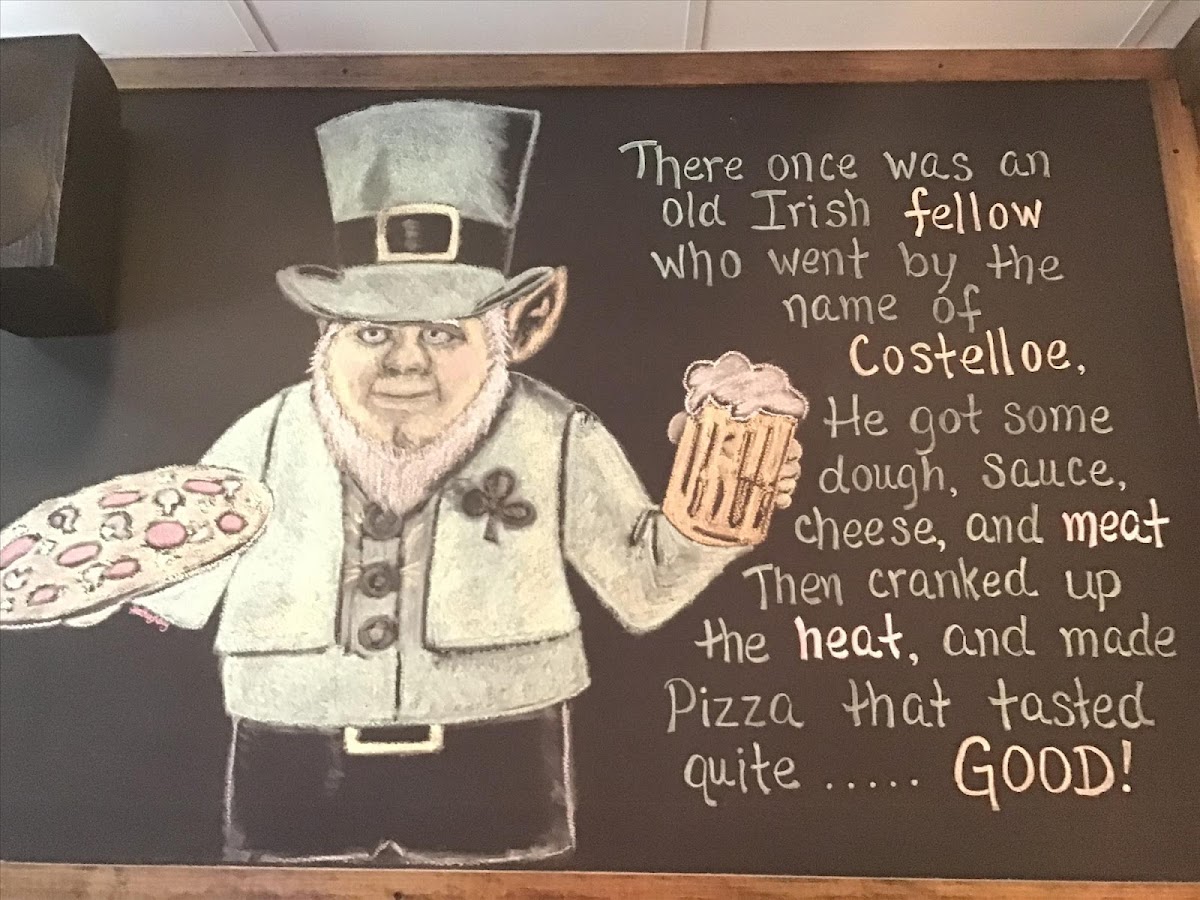 There once was an
old Irish fellow
who went by the
name of
Costelloe,
He got some
dough, sauce,
cheese, and meat
Then cranked up
the heat, and made
Pizza that tasted
quite ..... GOOD!